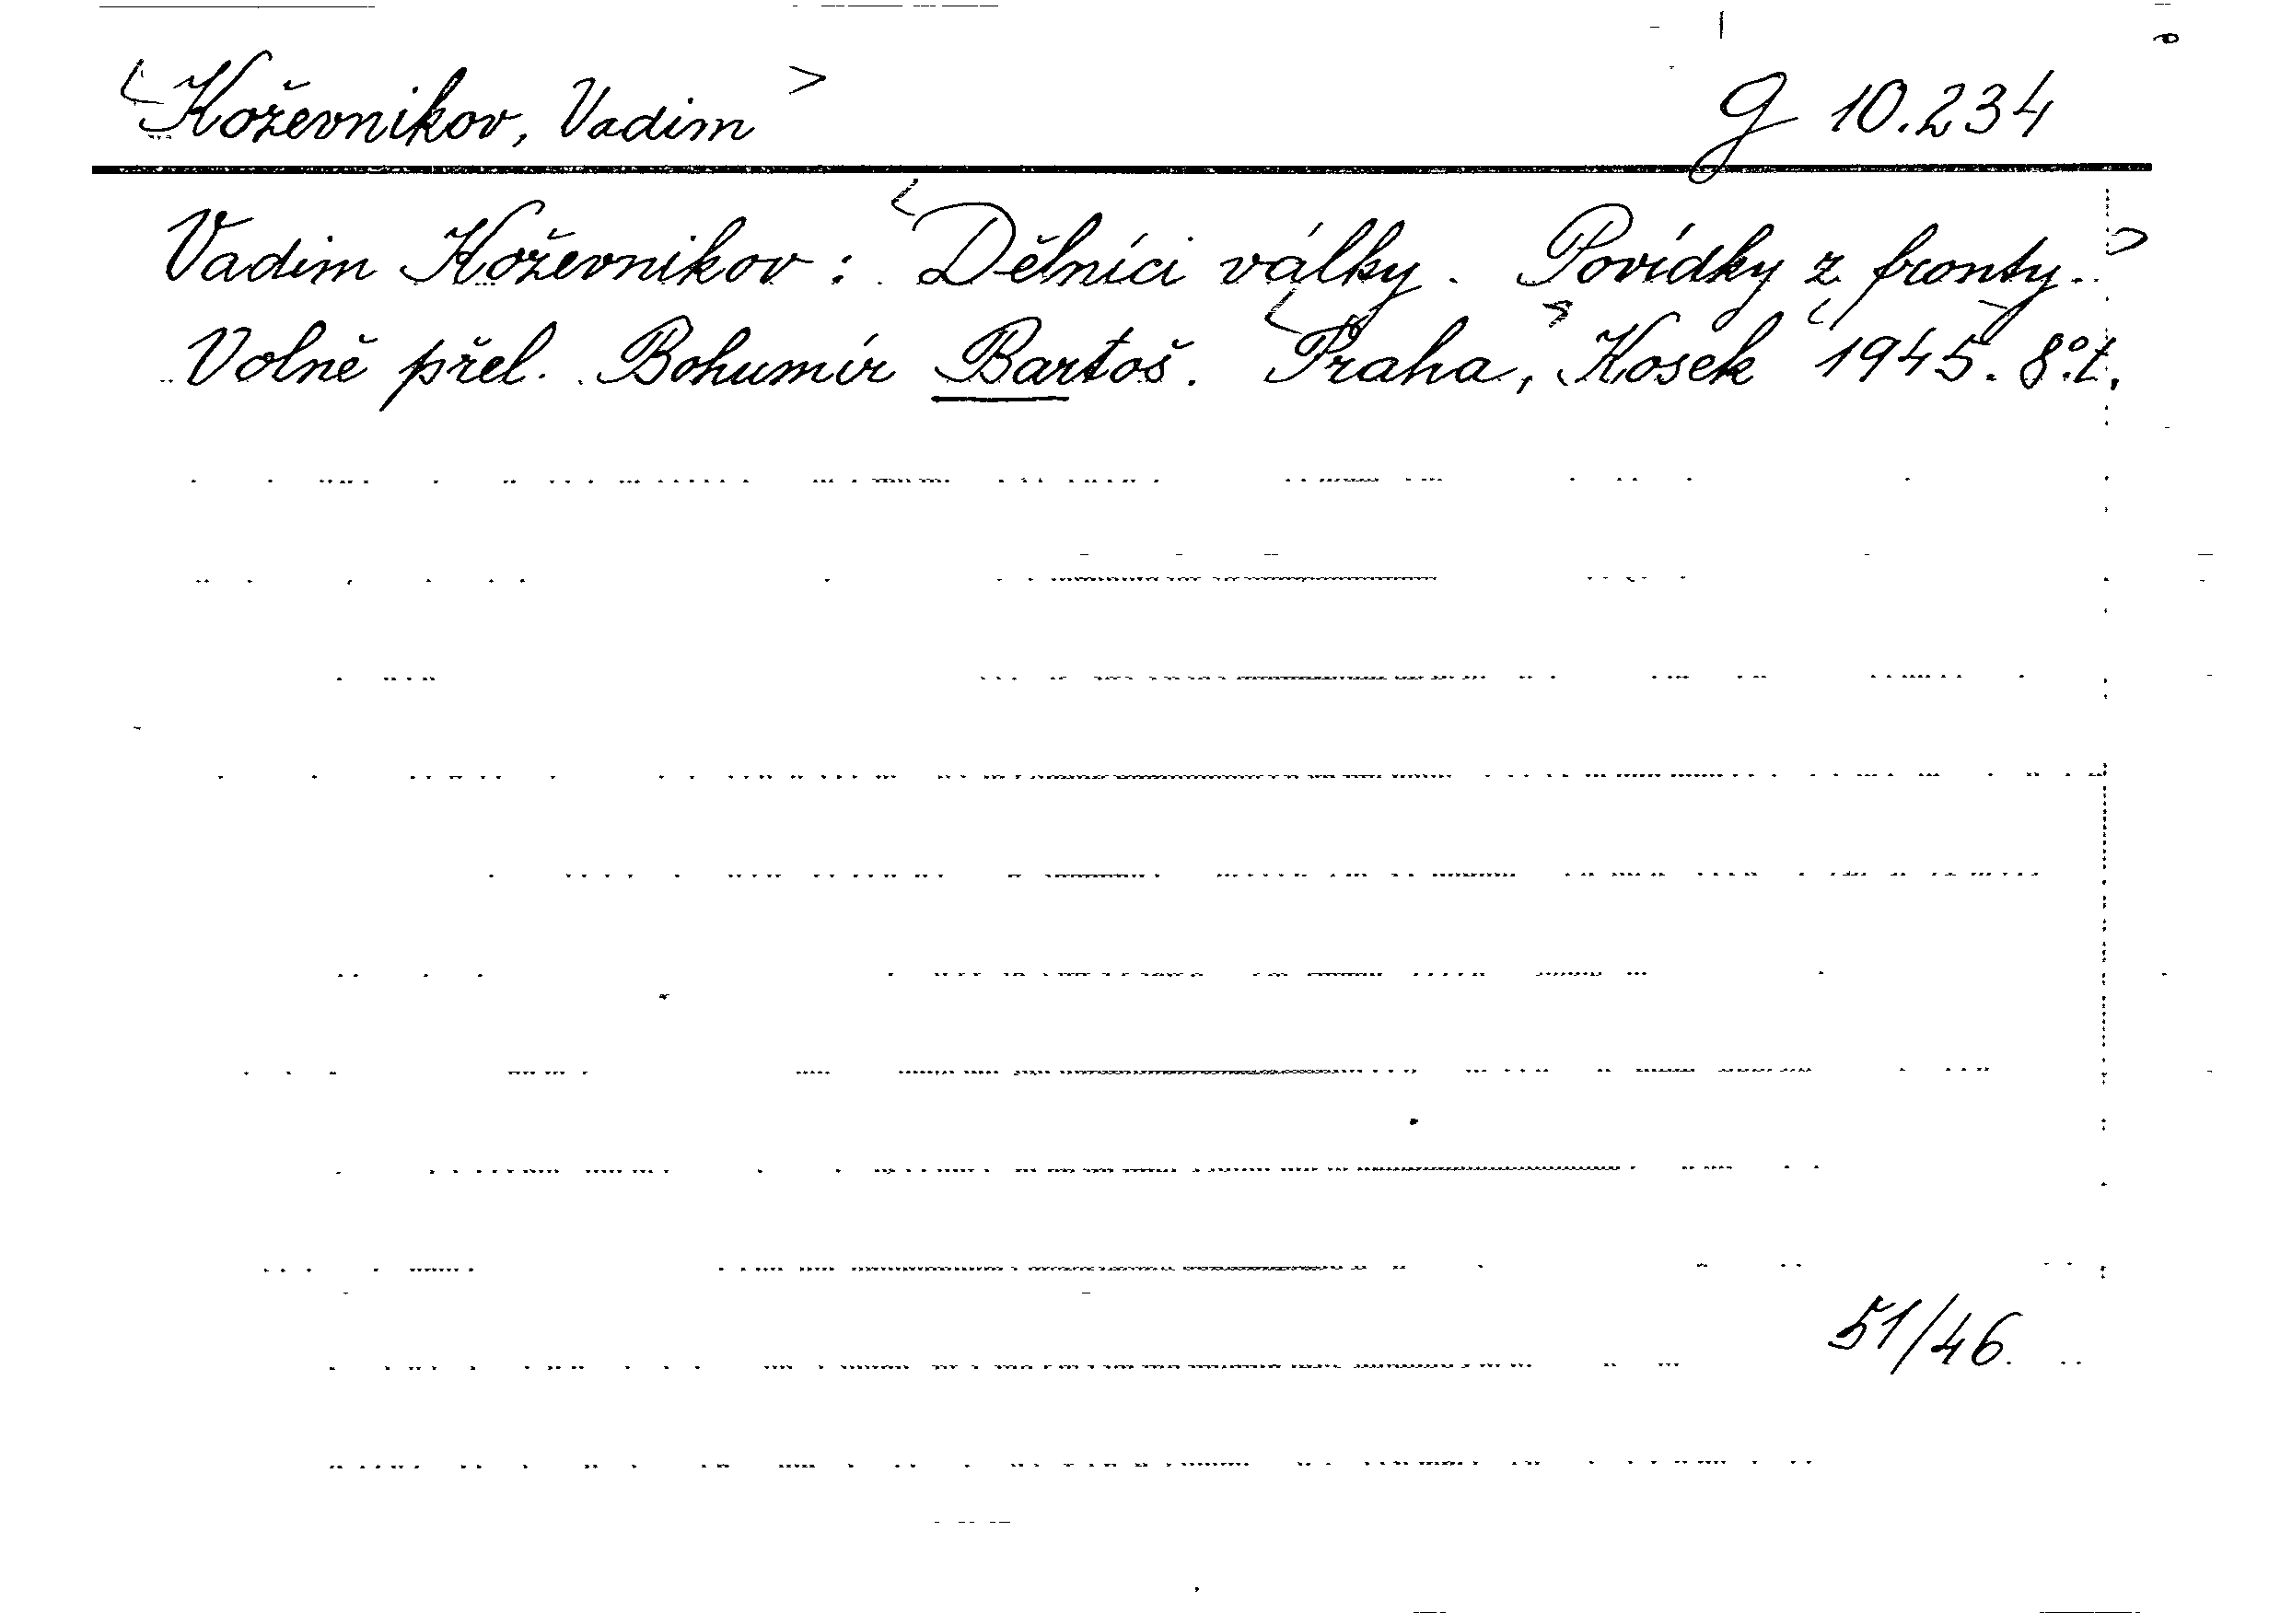 Koževnikov, Vadim G 10.234
Vadim Koževnikov : Dělníci války. Povídky z fronty.
Volně přel. Bohumír Bartoš. Praha, Kosek 1945. 8°. t.
51/46.